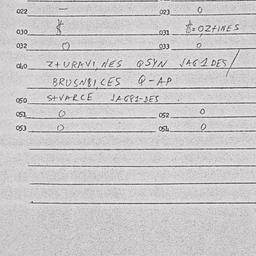 022 — 023 0
030 031 OZTINES
032 0 033 0
040 Z+URAVINES QSYN JAG1DES/
BRUSNBICES Q-AP
050 S+VARCE JAGP1-DES
051 0 052 0
053 0 054 0